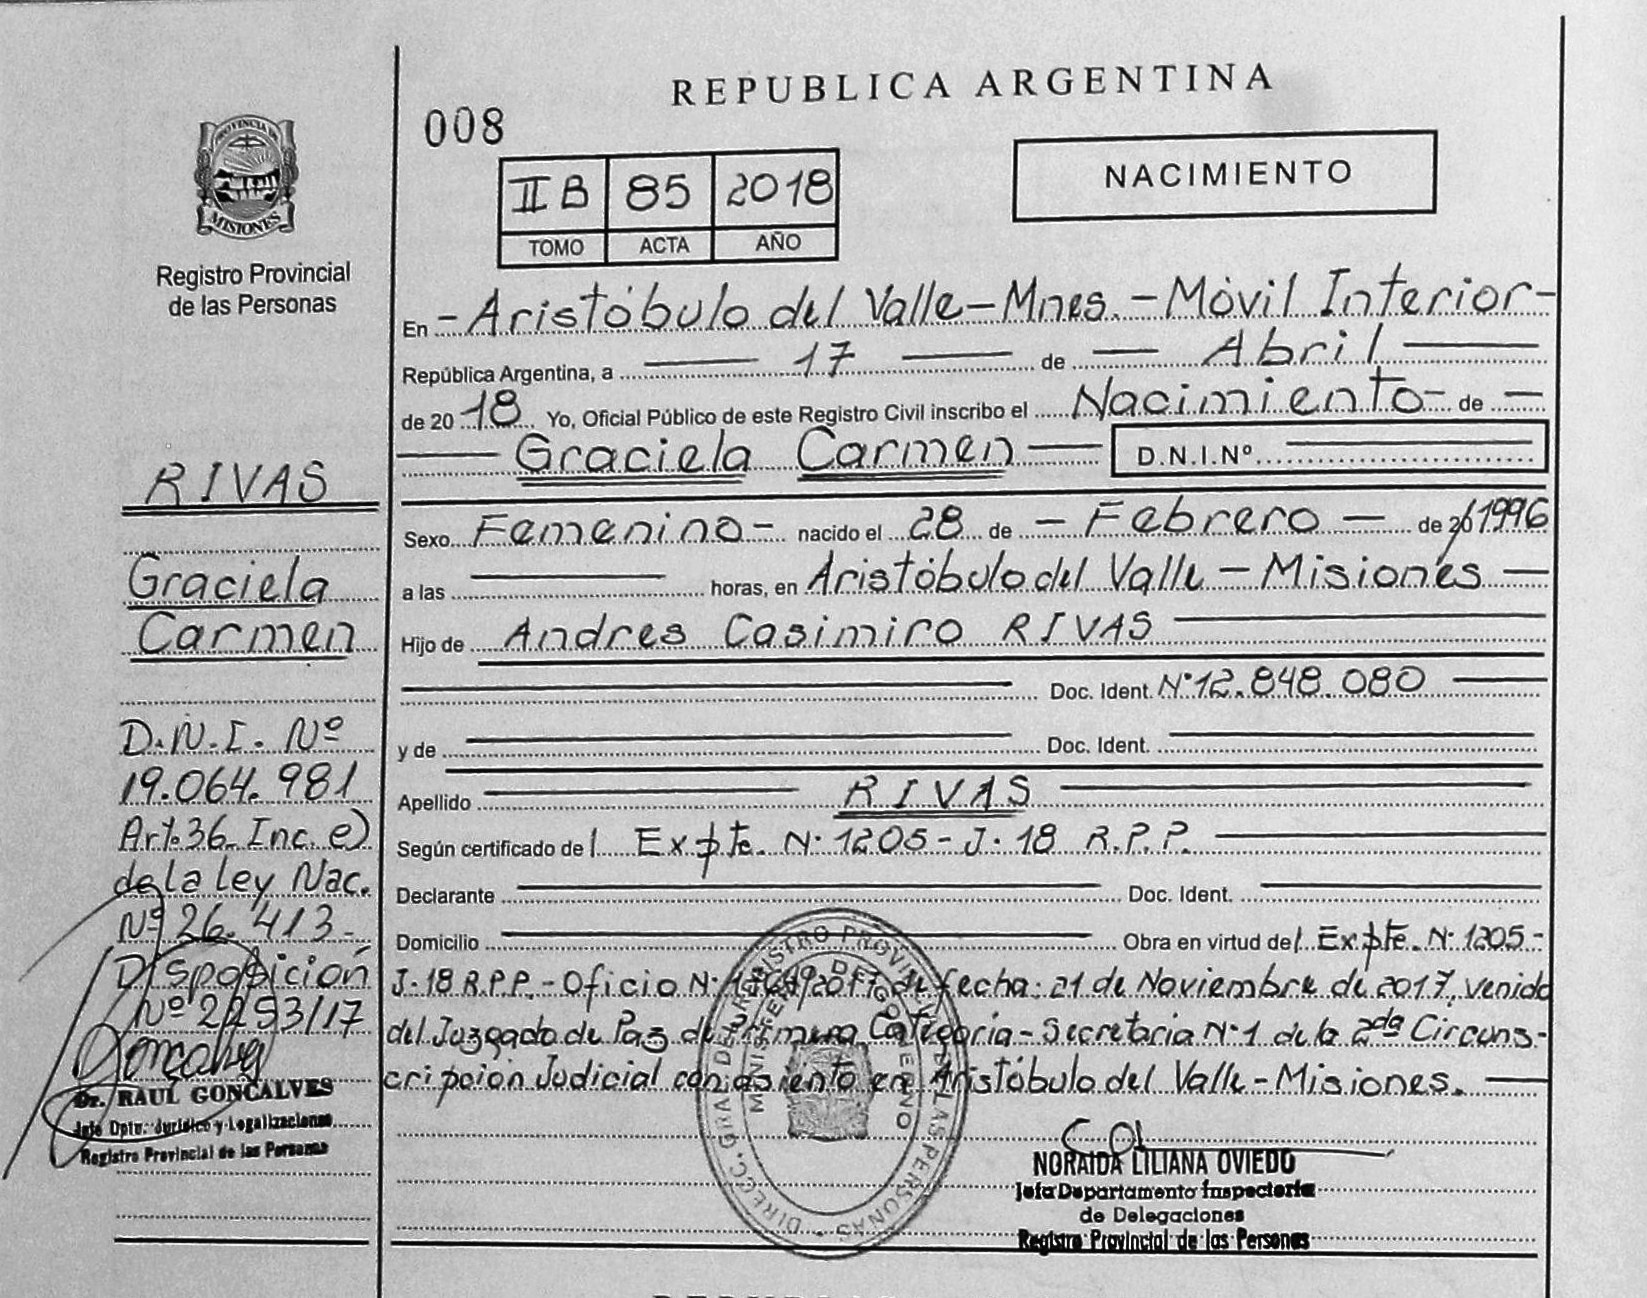 REPUBLICA ARGENTINA
008
PROVINCIA DE
MISIONES
Registro Provincial
de las Personas
II B 85 2018
TOMO ACTA AÑO
NACIMIENTO
En - Aristóbulo del Valle - Mnes. - Móvil Interior -
República Argentina, a 17 de Abril
de 20 18 Yo, Oficial Público de este Registro Civil inscribo el Nacimiento - de -
Graciela Carmen D.N.I.Nº
Sexo Femenino - nacido el 28 de - Febrero - de 20/1996
a las horas, en Aristóbulo del Valle - Misiones -
Hijo de Andres Casimiro RIVAS
Doc. Ident. Nº 12.848.080
y de Doc. Ident.
Apellido RIVAS
Según certificado de l Expte. Nº 1205 - J. 18 R.P.P.
Declarante Doc. Ident.
Domicilio Obra en virtud de l Expte. Nº 1205 -
J-18 R.P.P. - Oficio Nº 2017 de fecha: 21 de Noviembre de 2017, venido
del Juzgado de Paz de Primera Categoría - Secretaria Nº 1 de la 2da Circuns-
cripción Judicial con asiento en Aristóbulo del Valle - Misiones.
RIVAS
Graciela
Carmen
D.N.I. Nº
19.064.981
Art. 36 Inc. e)
de la ley Nac.
Nº 26.413 -
Disposición
Nº 2293/17
Goncalves
Dr. RAUL GONCALVES
Jefe Dpto. Jurídico y Legalizaciones
Registro Provincial de las Personas
DIRECC. GRAL. DE REGISTRO PROVINCIAL DE LAS PERSONAS
MINISTERIO DE GOBIERNO
NORAIDA LILIANA OVIEDO
Jefa Departamento Inspectoría
de Delegaciones
Registro Provincial de las Personas